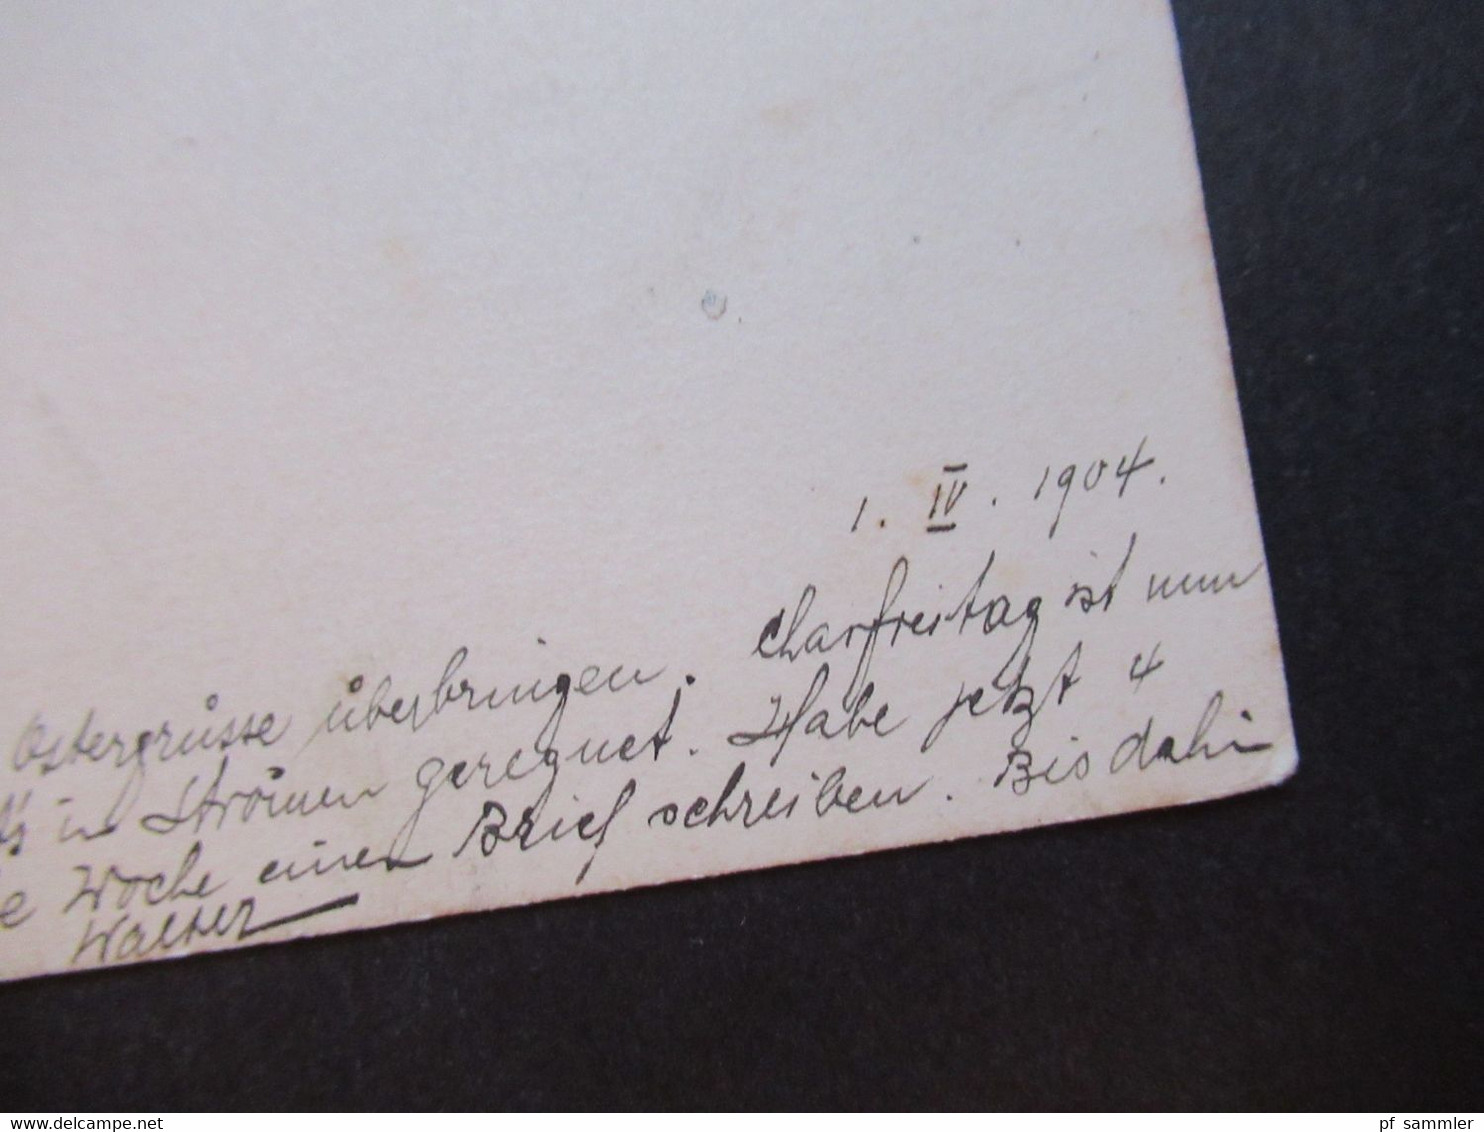 1. IV. 1904.
Ostergrüsse überbringen. Charfreitag ist nun
in Strömen geregnet. Habe jetzt 4
Woche einen Brief schreiben. Bis dahin
Walter
pf_sammler
www.delcampe.net